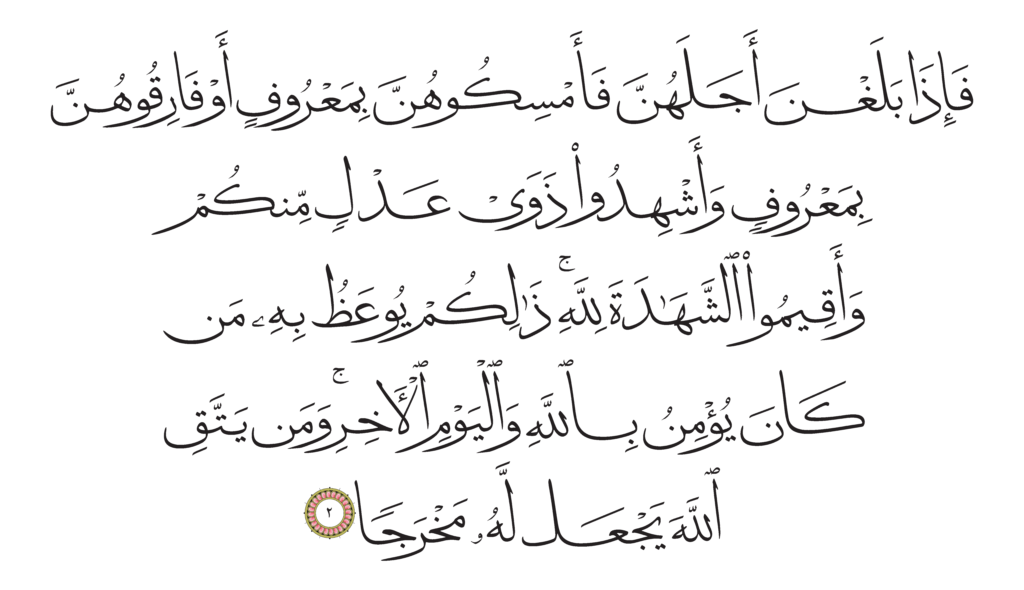 فَإِذَا بَلَغْنَ أَجَلَهُنَّ فَأَمْسِكُوهُنَّ بِمَعْرُوفٍ أَوْ فَارِقُوهُنَّ
بِمَعْرُوفٍ وَأَشْهِدُوا۟ ذَوَىْ عَدْلٍ مِّنكُمْ
وَأَقِيمُوا۟ ٱلشَّهَـٰدَةَ لِلَّهِ ۚ ذَٰلِكُمْ يُوعَظُ بِهِۦ مَن
كَانَ يُؤْمِنُ بِٱللَّهِ وَٱلْيَوْمِ ٱلْأَخِرِ ۚ وَمَن يَتَّقِ
ٱللَّهَ يَجْعَل لَّهُۥ مَخْرَجًا ٢